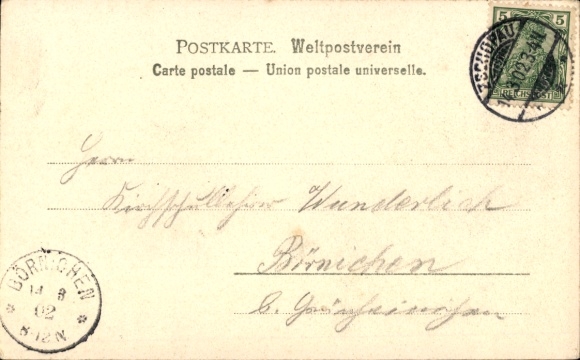 POSTKARTE. Weltpostverein
Carte postale — Union postale universelle.
5 5
REICHSPOST
ZSCHOPAU
Herrn
Kirchschullehrer Wunderlich
Börnichen
b. Grünhainichen
BÖRNICHEN
02
8-12 N